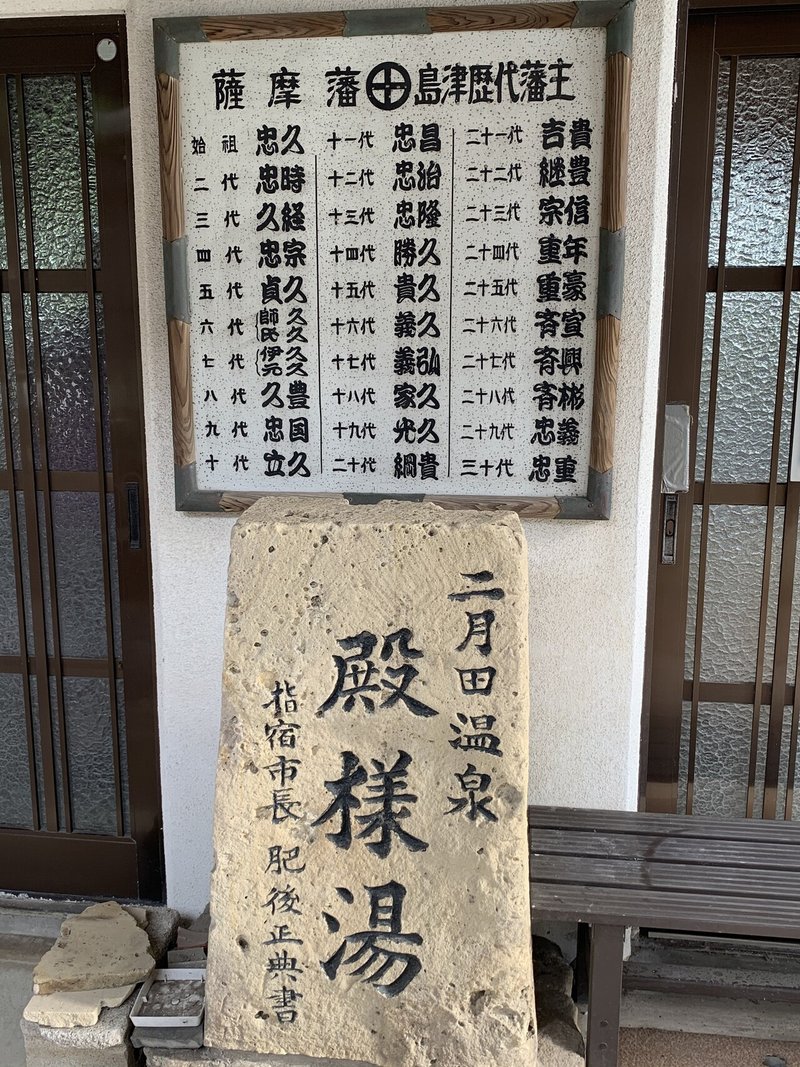 薩摩藩 島津歴代藩主
始祖 忠久
二代 忠時
三代 久経
四代 忠宗
五代 貞久
六代 師久 氏久
七代 伊久 元久
八代 久豊
九代 忠国
十代 立久
十一代 忠昌
十二代 忠治
十三代 忠隆
十四代 勝久
十五代 貴久
十六代 義久
十七代 義弘
十八代 家久
十九代 光久
二十代 綱貴
二十一代 吉貴
二十二代 継豊
二十三代 宗信
二十四代 重年
二十五代 重豪
二十六代 斉宣
二十七代 斉興
二十八代 斉彬
二十九代 忠義
三十代 忠重
二月田温泉
殿様湯
指宿市長 肥後正典書